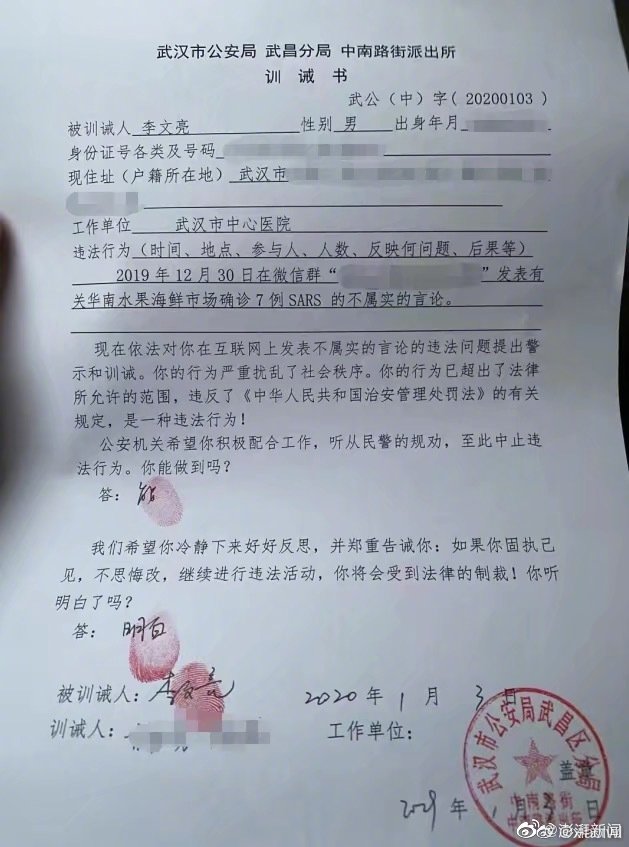 武汉市公安局 武昌分局 中南路街派出所
训 诫 书
武公（中）字（20200103）
被训诫人 李文亮 性别 男 出身年月
身份证号各类及号码
现住址（户籍所在地） 武汉市
工作单位 武汉市中心医院
违法行为（时间、地点、参与人、人数、反映何问题、后果等）
2019 年 12 月 30 日在微信群“ ”发表有
关华南水果海鲜市场确诊 7 例 SARS 的不属实的言论。
现在依法对你在互联网上发表不属实的言论的违法问题提出警
示和训诫。你的行为严重扰乱了社会秩序。你的行为已超出了法律
所允许的范围，违反了《中华人民共和国治安管理处罚法》的有关
规定，是一种违法行为！
公安机关希望你积极配合工作，听从民警的规劝，至此中止违
法行为。你能做到吗？
答： 能
我们希望你冷静下来好好反思，并郑重告诫你：如果你固执己
见，不思悔改，继续进行违法活动，你将会受到法律的制裁！你听
明白了吗？
答： 明白
被训诫人：李文亮 2020 年 1 月 3 日
训诫人： 工作单位：
武汉市公安局武昌区分局
盖章
中南路街
年 1 月 3 日
澎湃新闻